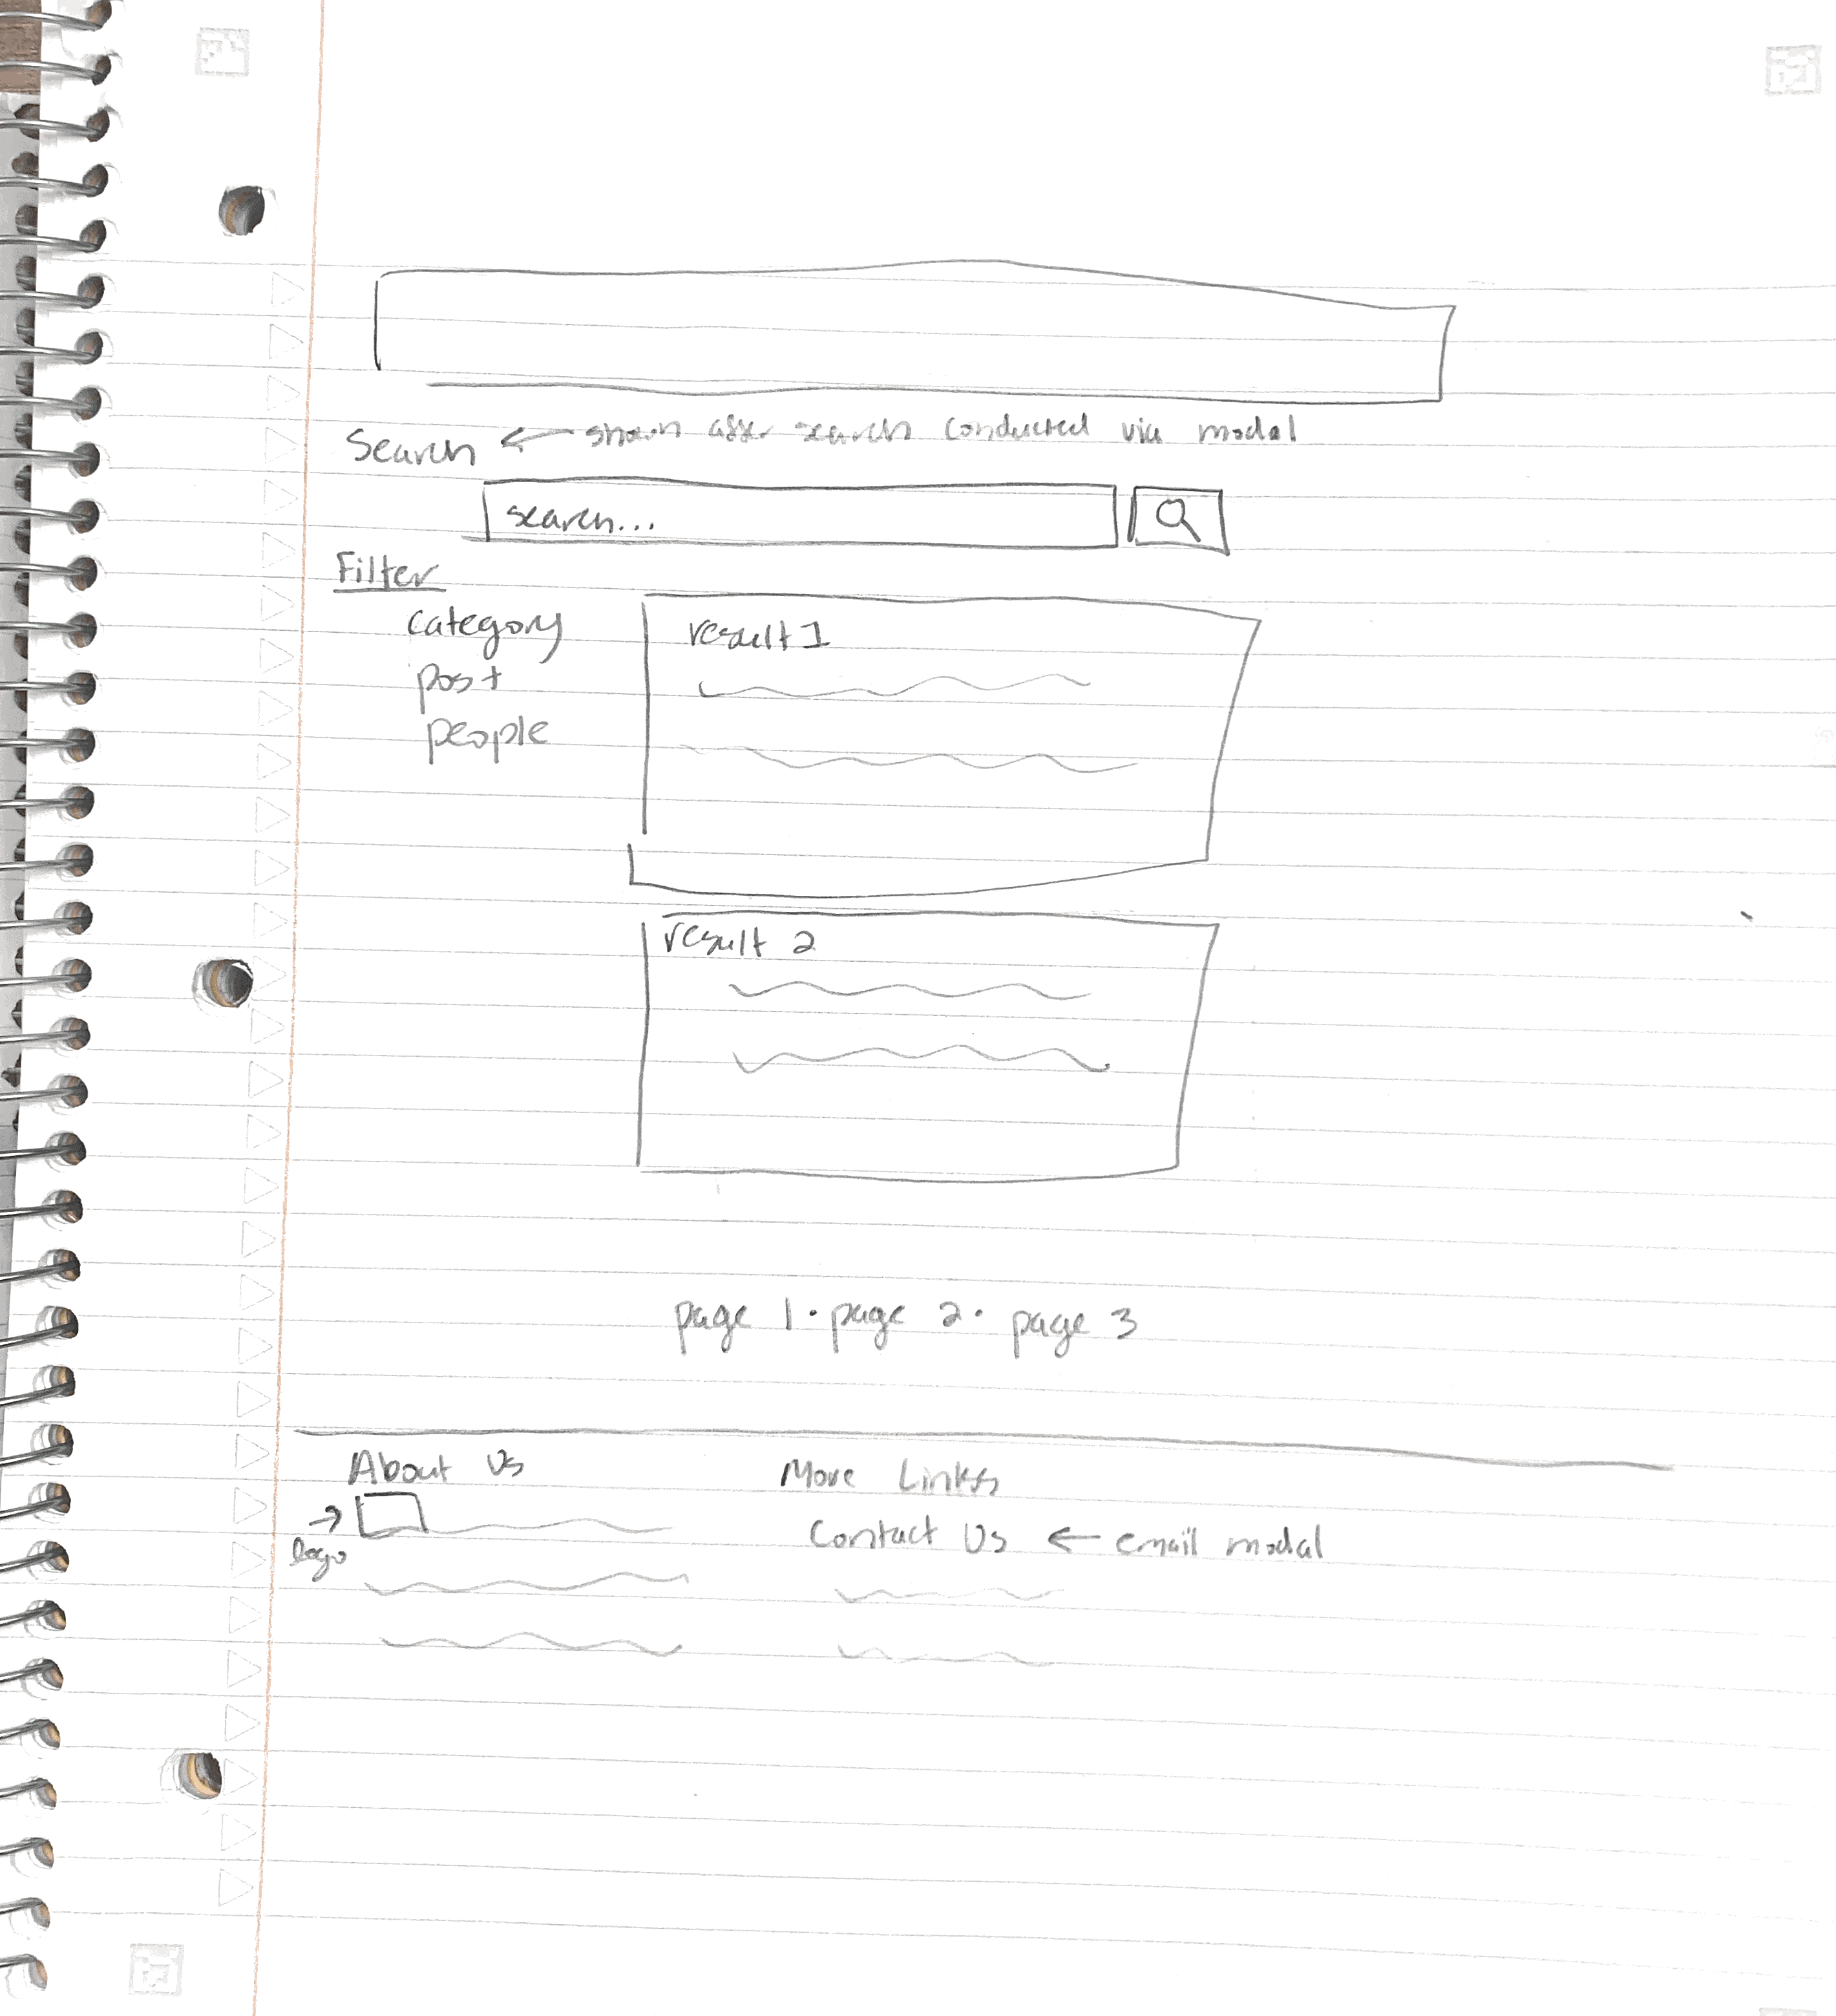 Search ← shown after search conducted via modal
search...
Filter
category
post
people
result 1
result 2
page 1 · page 2 · page 3
About Us
More Links
→
logo
Contact Us ← email modal